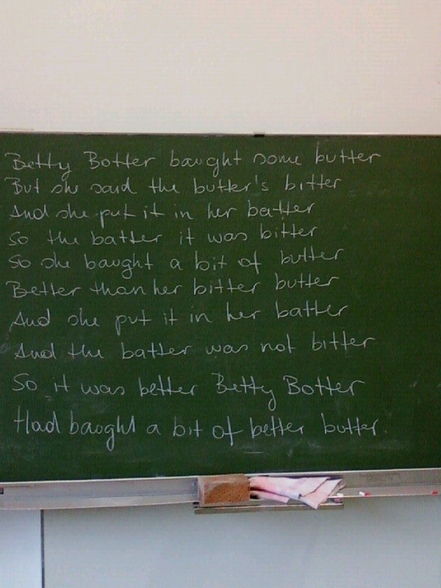 Betty Botter baught some butter
But she said the butter's bitter
And she put it in her batter
So the batter it was bitter
So she baught a bit of butter
Better than her bitter butter
And she put it in her batter
And the batter was not bitter
So it was better Betty Botter
Had baught a bit of better butter.